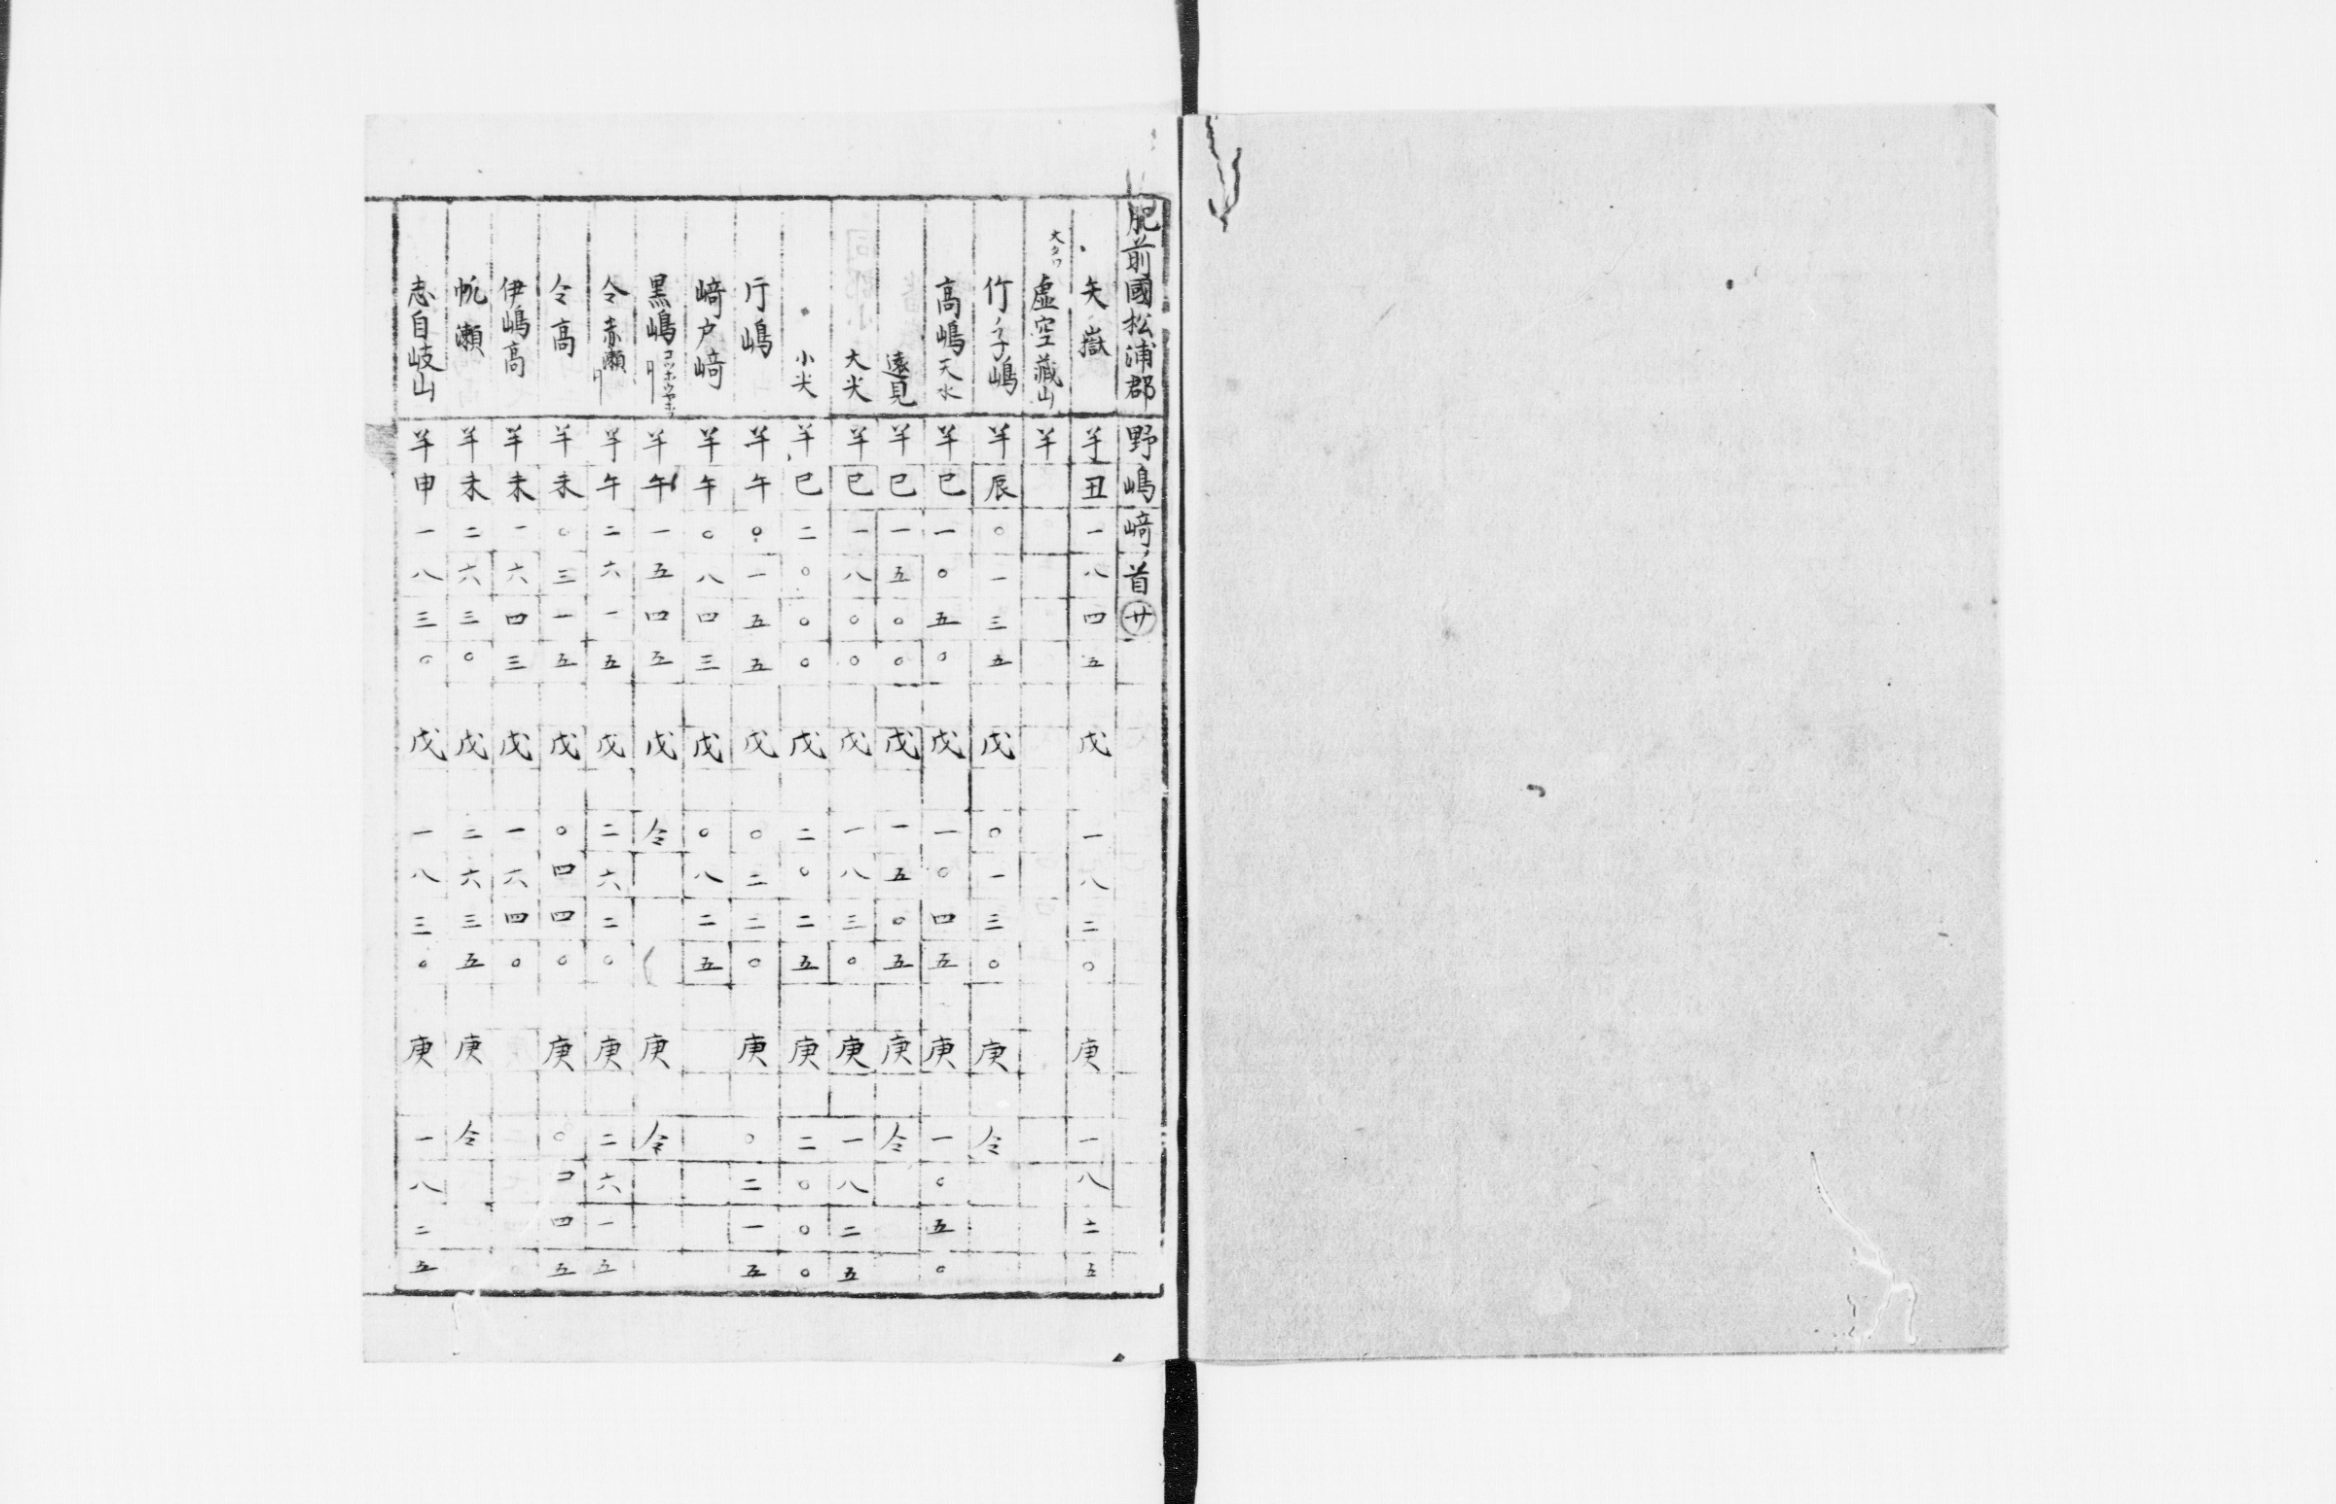 肥前國松浦郡 野嶋﨑首 廿
矢嶽 羊 丑 一八四五 戊 一八二〇 庚 一八二五
大タケ 虚空蔵山 羊
竹ノ子嶋 羊 辰 〇一三五 戊 〇一三〇 庚 仝
高嶋 天水 羊 巳 一〇五〇 戊 一〇四五 庚 一〇五〇
遠見 羊 巳 一五〇〇 戊 一五〇五 庚 仝
大尖 羊 巳 一八〇〇 戊 一八三〇 庚 一八二五
小尖 羊 巳 二〇〇〇 戊 二〇二五 庚 二〇〇〇
片嶋 羊 午 〇一五五 戊 〇二二〇 庚 〇二一五
﨑戸﨑 羊 午 〇八四三 戊 〇八二五
黒嶋 羊 午 一五四五 戊 仝 庚 仝
仝赤瀬 羊 午 二六一五 戊 二六二〇 庚 二六一五
仝高 羊 未 〇三一五 戊 〇四四〇 庚 〇四五
伊嶋高 羊 未 一六四三 戊 一六四〇
帆瀬 羊 未 二六三〇 戊 二六三五 庚 仝
志自岐山 羊 申 一八三〇 戊 一八三〇 庚 一八二五